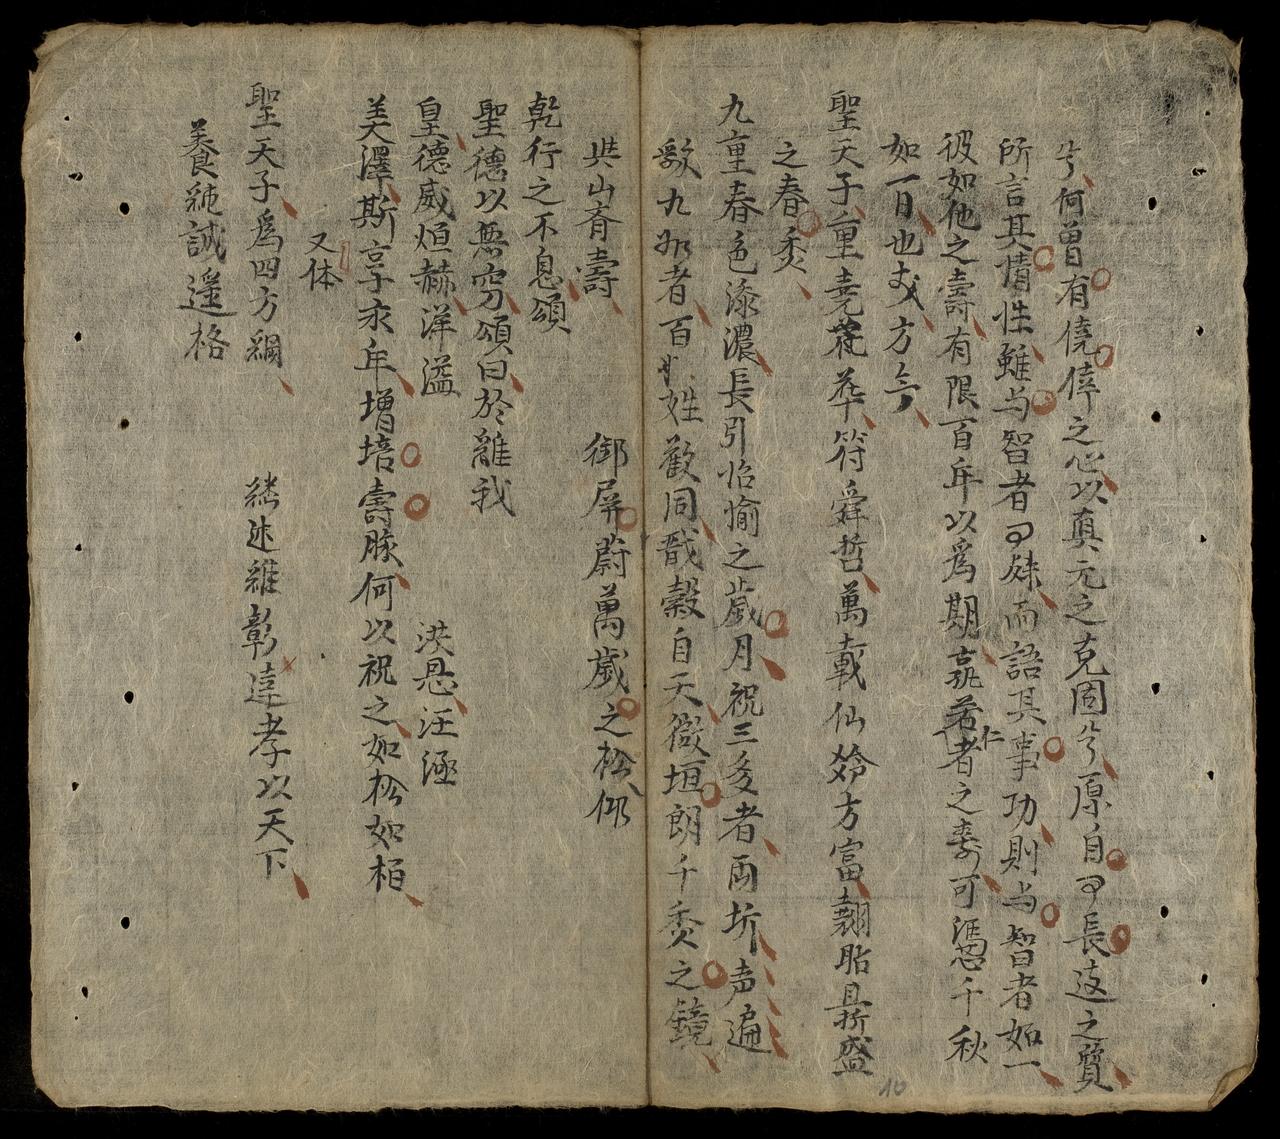 兮何曾有僥倖之心以真元之克固兮原自有長遠之質
所言其情性雖与智者而殊而語其事功則与智者如一
彼如他之壽有限百年以為期孰若仁者之壽可憑千秋
如一日也哉方今
聖天子重堯蓂莢符舜哲萬載仙齡方富翹昌盛
之春秋
九重春色添濃長引怡愉之歲月祝三多者兩圻声遍
歌九如者百姓歡同戩穀自天微垣朗千秋之鏡
共山育壽
御屏蔚萬歲之松仰
乾行之不息頌
聖德以無窮頌曰於維我
皇德威烜赫洋溢
洪恩汪涵
美澤斯享永年增培壽脉何以祝之如松如栢
又体
聖天子為四方綱
繼述維彰達孝以天下
養純誠遥格